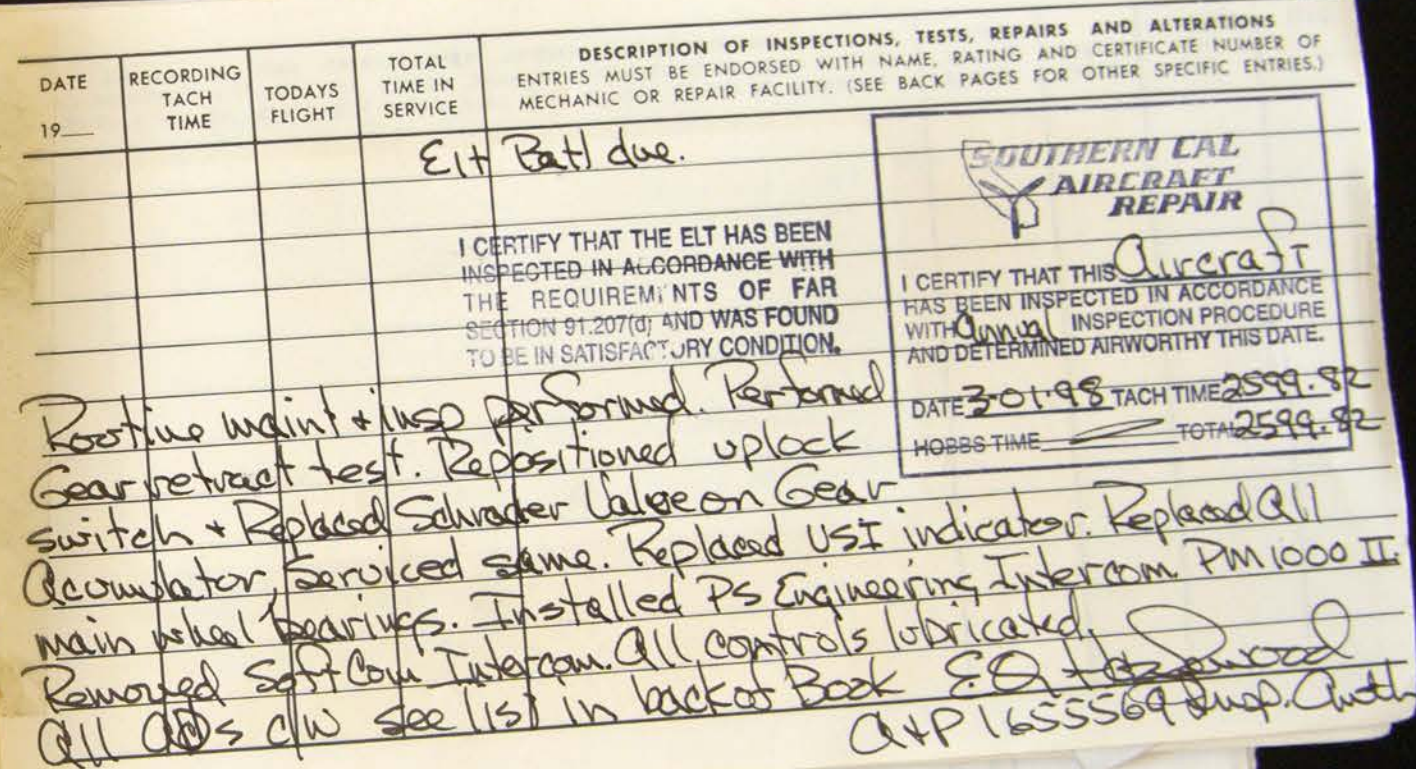 DATE
19
RECORDING
TACH
TIME
TODAYS
FLIGHT
TOTAL
TIME IN
SERVICE
DESCRIPTION OF INSPECTIONS, TESTS, REPAIRS AND ALTERATIONS
ENTRIES MUST BE ENDORSED WITH NAME, RATING AND CERTIFICATE NUMBER OF
MECHANIC OR REPAIR FACILITY. (SEE BACK PAGES FOR OTHER SPECIFIC ENTRIES.)
Elt Batt due.
I CERTIFY THAT THE ELT HAS BEEN
INSPECTED IN ACCORDANCE WITH
THE REQUIREMENTS OF FAR
SECTION 91.207(d) AND WAS FOUND
TO BE IN SATISFACTORY CONDITION.
SOUTHERN CAL
AIRCRAFT
REPAIR
I CERTIFY THAT THIS Aircraft
HAS BEEN INSPECTED IN ACCORDANCE
WITH Annual INSPECTION PROCEDURE
AND DETERMINED AIRWORTHY THIS DATE.
DATE 3-01-98 TACH TIME 2599.82
HOBBS TIME TOTAL 2599.82
Routine maint + insp performed. Performed
Gear retract test. Repositioned uplock
switch + Replaced Schrader Valve on Gear
Acumulator, Serviced same. Replaced USI indicator. Replaced All
main wheel bearings. Installed PS Engineering Intercom PM1000 II
Removed SoftCom Intercom. All controls lubricated.
All ADs c/w see list in back of Book
A+P 1655569 Insp. Auth